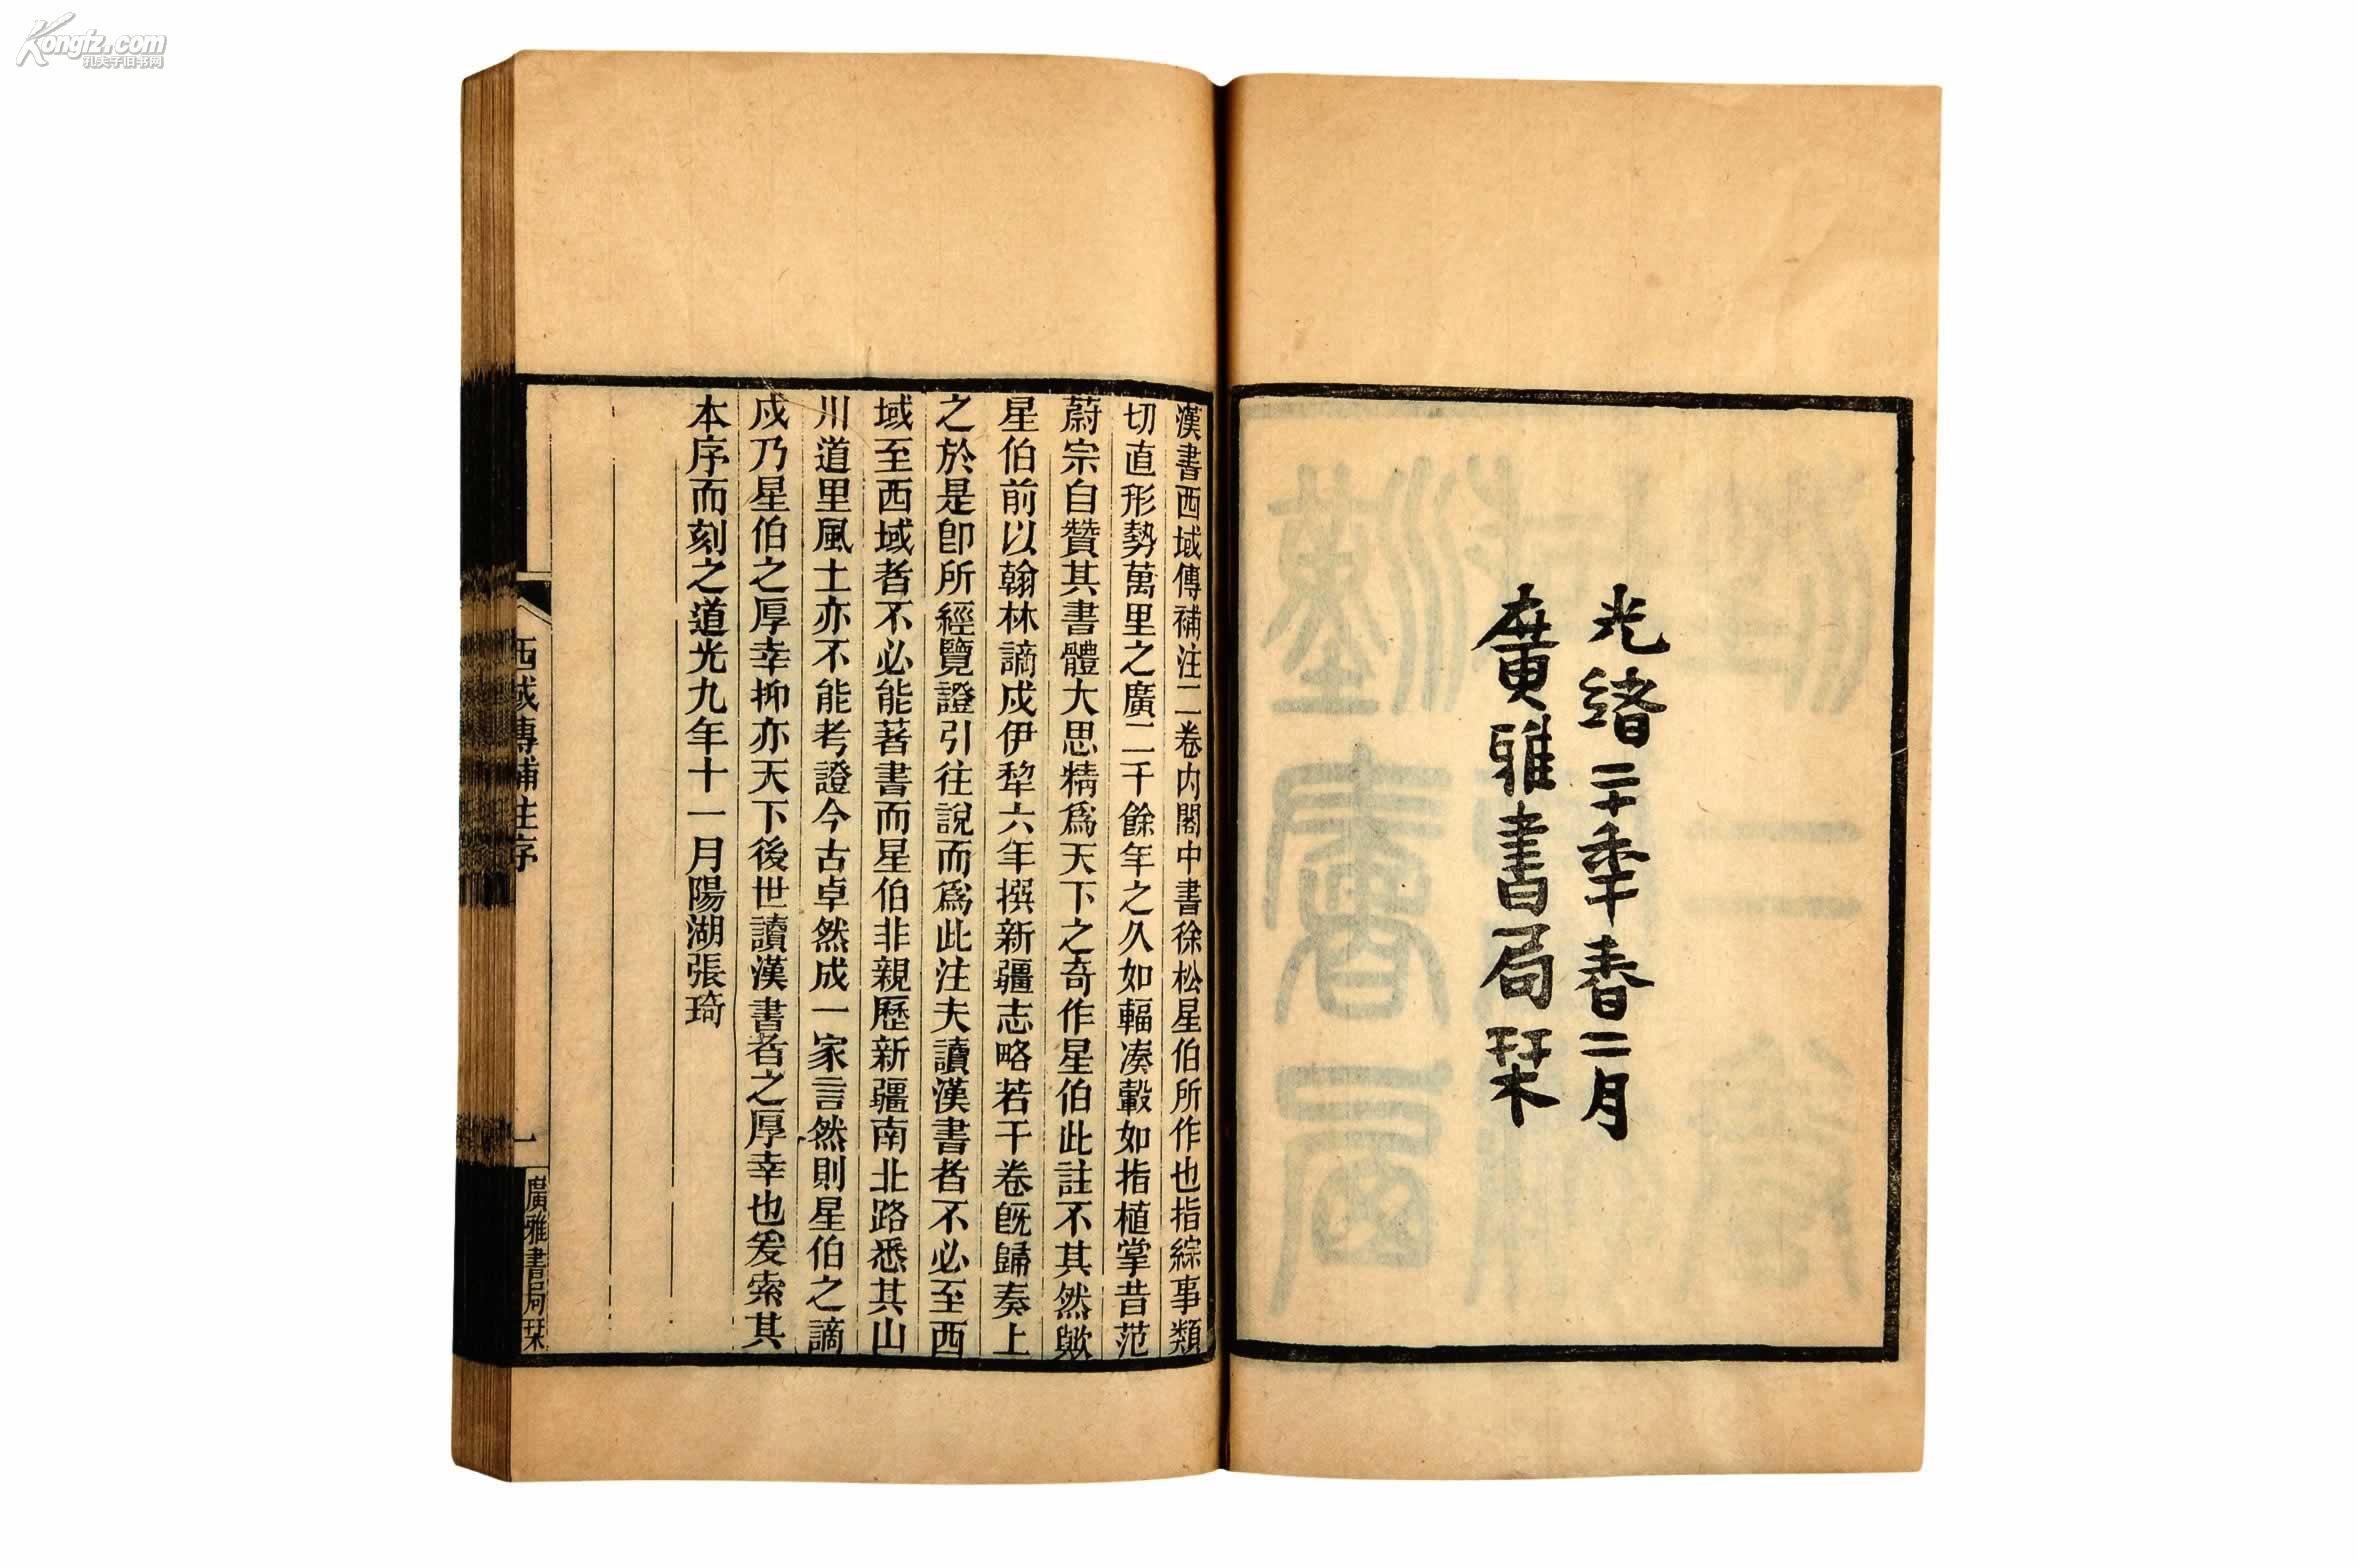 Kongfz.com
孔夫子旧书网
光緒二十季春二月
廣雅書局栞
漢書西域傳補注二卷内閣中書徐松星伯所作也指綜事類
切直形勢萬里之廣二千餘年之久如輻凑轂如指植掌昔范
蔚宗自贊其書體大思精爲天下之奇作星伯此註不其然歟
星伯前以翰林謫戍伊犂六年撰新疆志略若干卷旣歸奏上
之於是卽所經覽證引往說而爲此注夫讀漢書者不必至西
域至西域者不必能著書而星伯非親歷新疆南北路悉其山
川道里風土亦不能考證今古卓然成一家言然則星伯之謫
戍乃星伯之厚幸抑亦天下後世讀漢書者之厚幸也爰索其
本序而刻之道光九年十一月陽湖張琦
西域傳補注序
一
廣雅書局栞